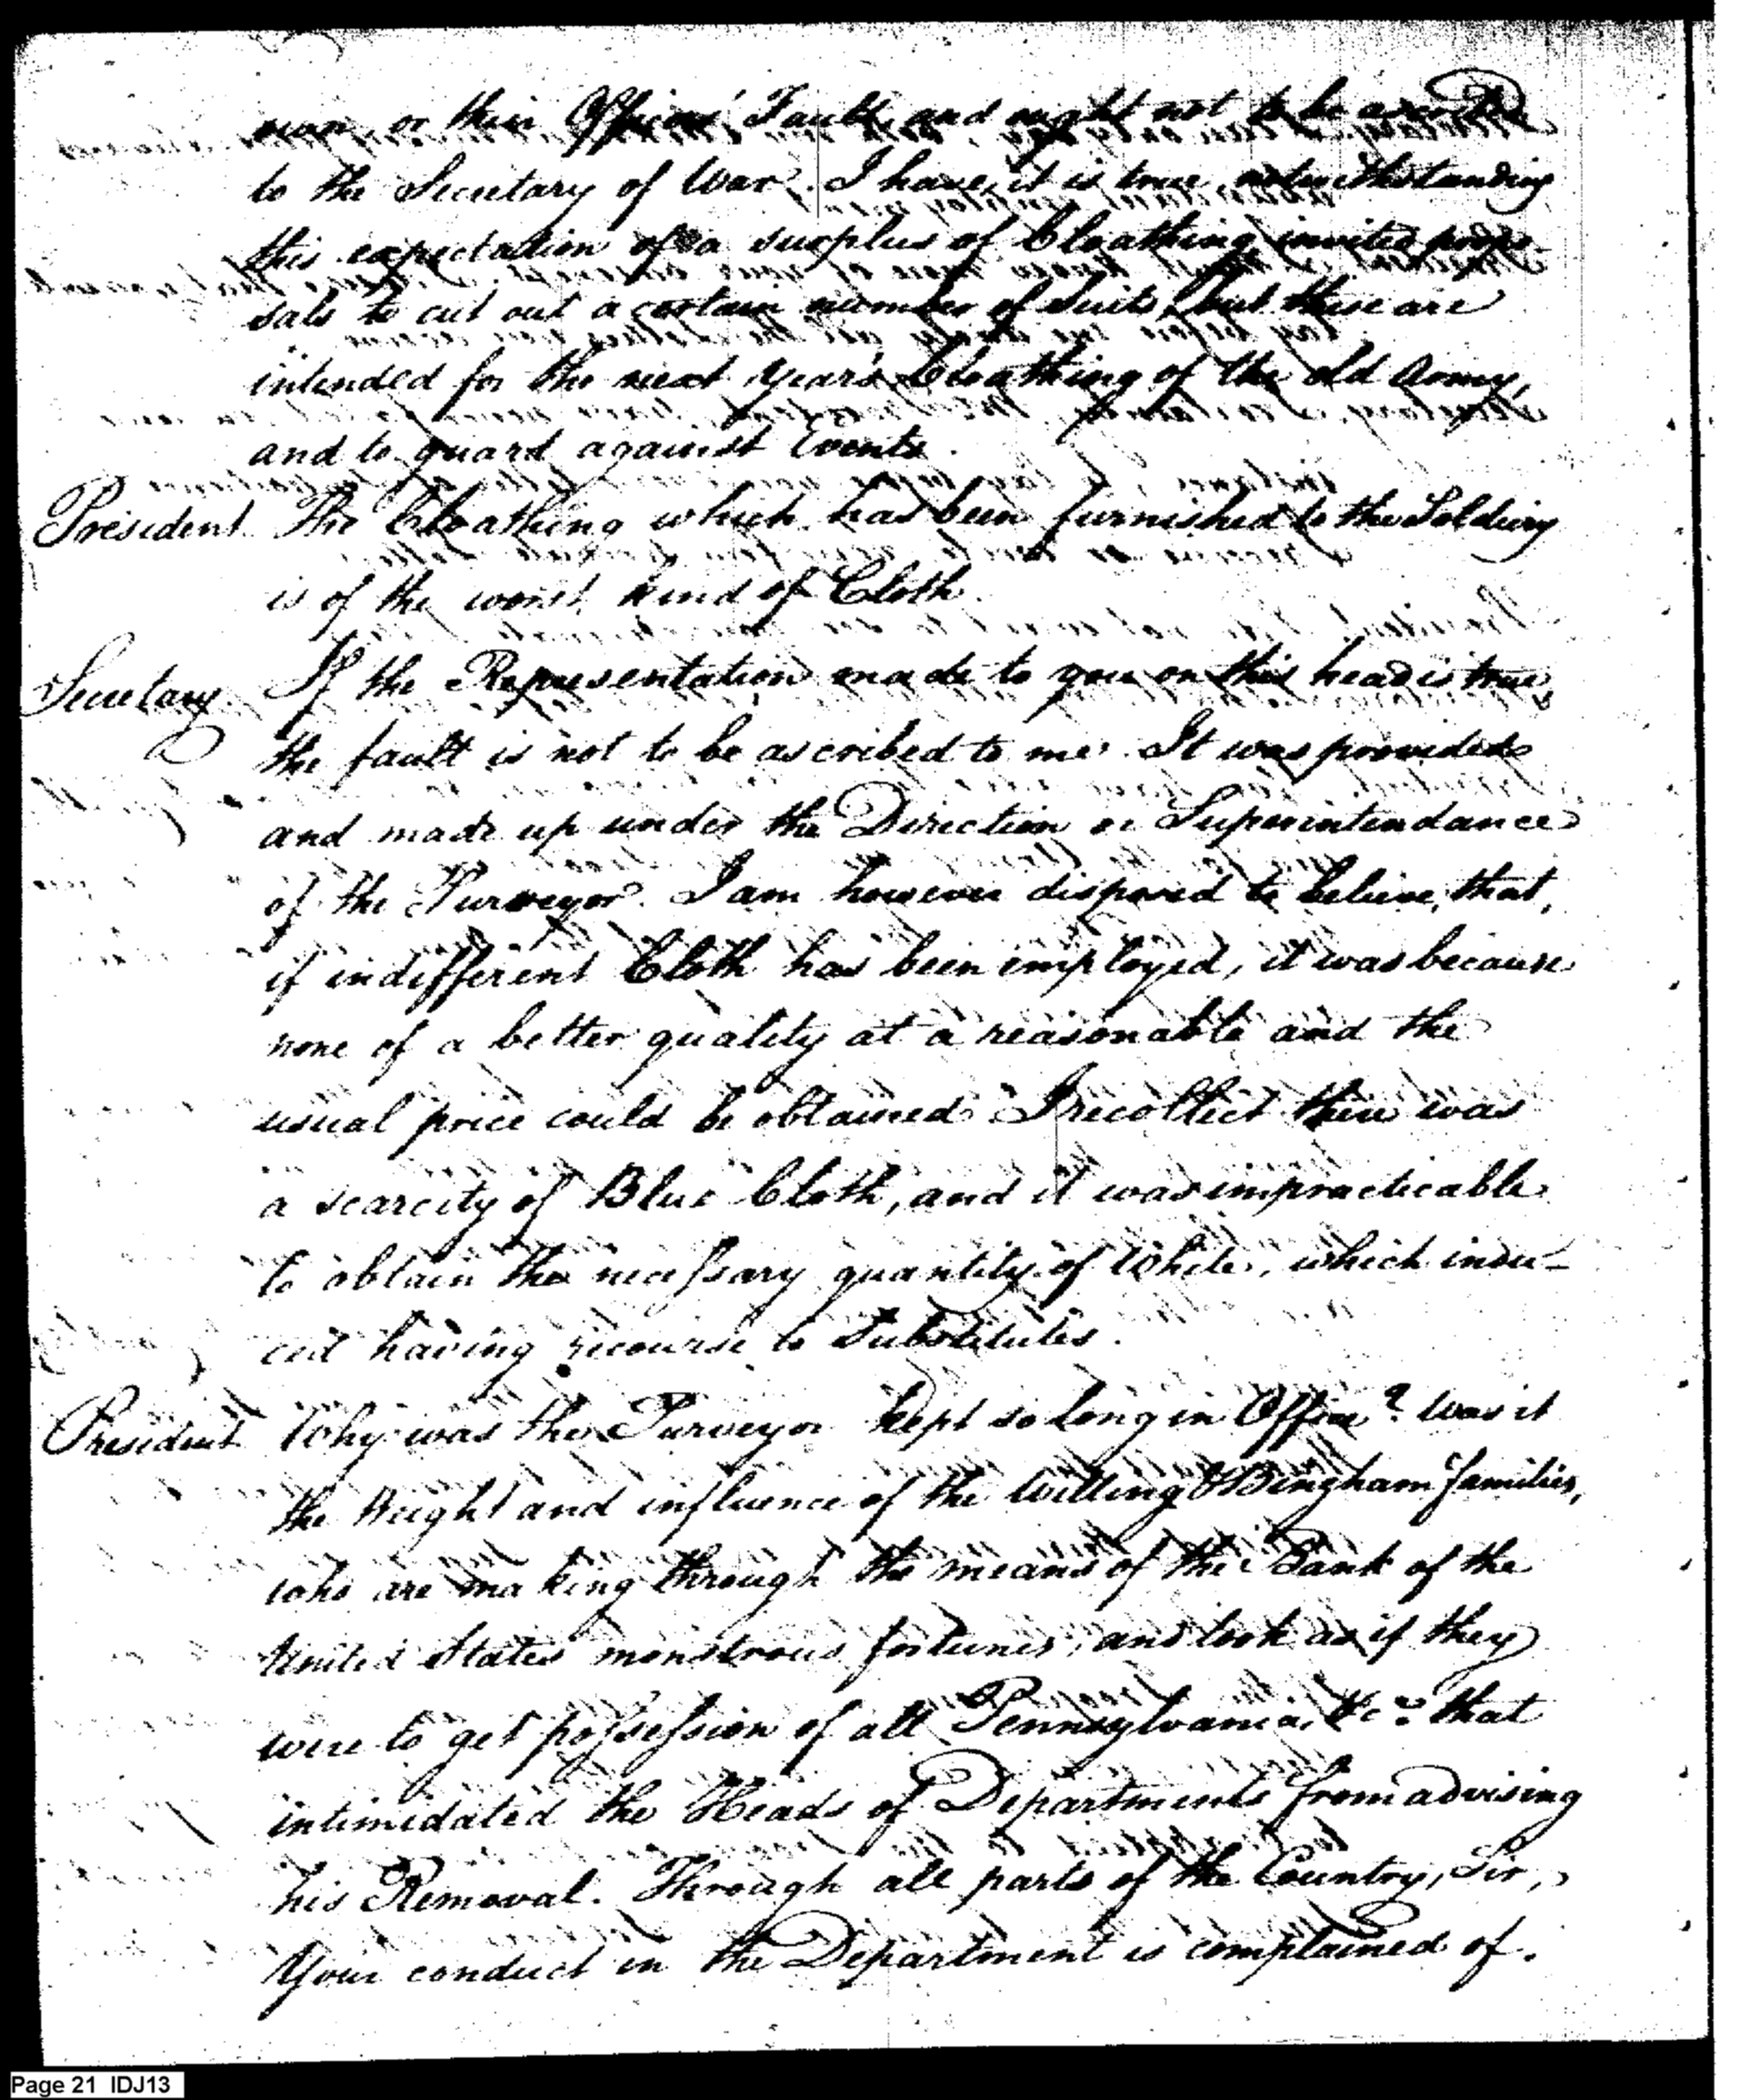 own, or their Officers' Fault, and ought not to be
to the Secretary of War. I have, it is true, notwithstanding
this expectation of a surplus of Cloathing invited propo-
sals to cut out a certain number of Suits, but these are
intended for the next Year's Cloathing of the old Army,
and to guard against Events.
President The Cloathing which has been furnished to the Soldiery
is of the worst kind of Cloth.
Secretary If the Representation made to you on this head is true,
the fault is not to be ascribed to me. It was provided
and made up under the Direction or Superintendance
of the Purveyor. I am however disposed to believe, that,
if indifferent Cloth has been employed, it was because
none of a better quality at a reasonable and the
usual price could be obtained. I recollect there was
a scarcity of Blue Cloth, and it was impracticable
to obtain the necessary quantity of White, which indu-
ced having recourse to Substitutes.
President Why was the Purveyor kept so long in Office? Was it
the Weight and influence of the Willing & Bingham families,
who are making through the means of the Bank of the
United States monstrous fortunes, and look as if they
were to get possession of all Pennsylvania, &c. that
intimidated the Heads of Departments from advising
his Removal. Through all parts of the Country, Sir,
Your conduct in the Department is complained of.
Page 21 IDJ13